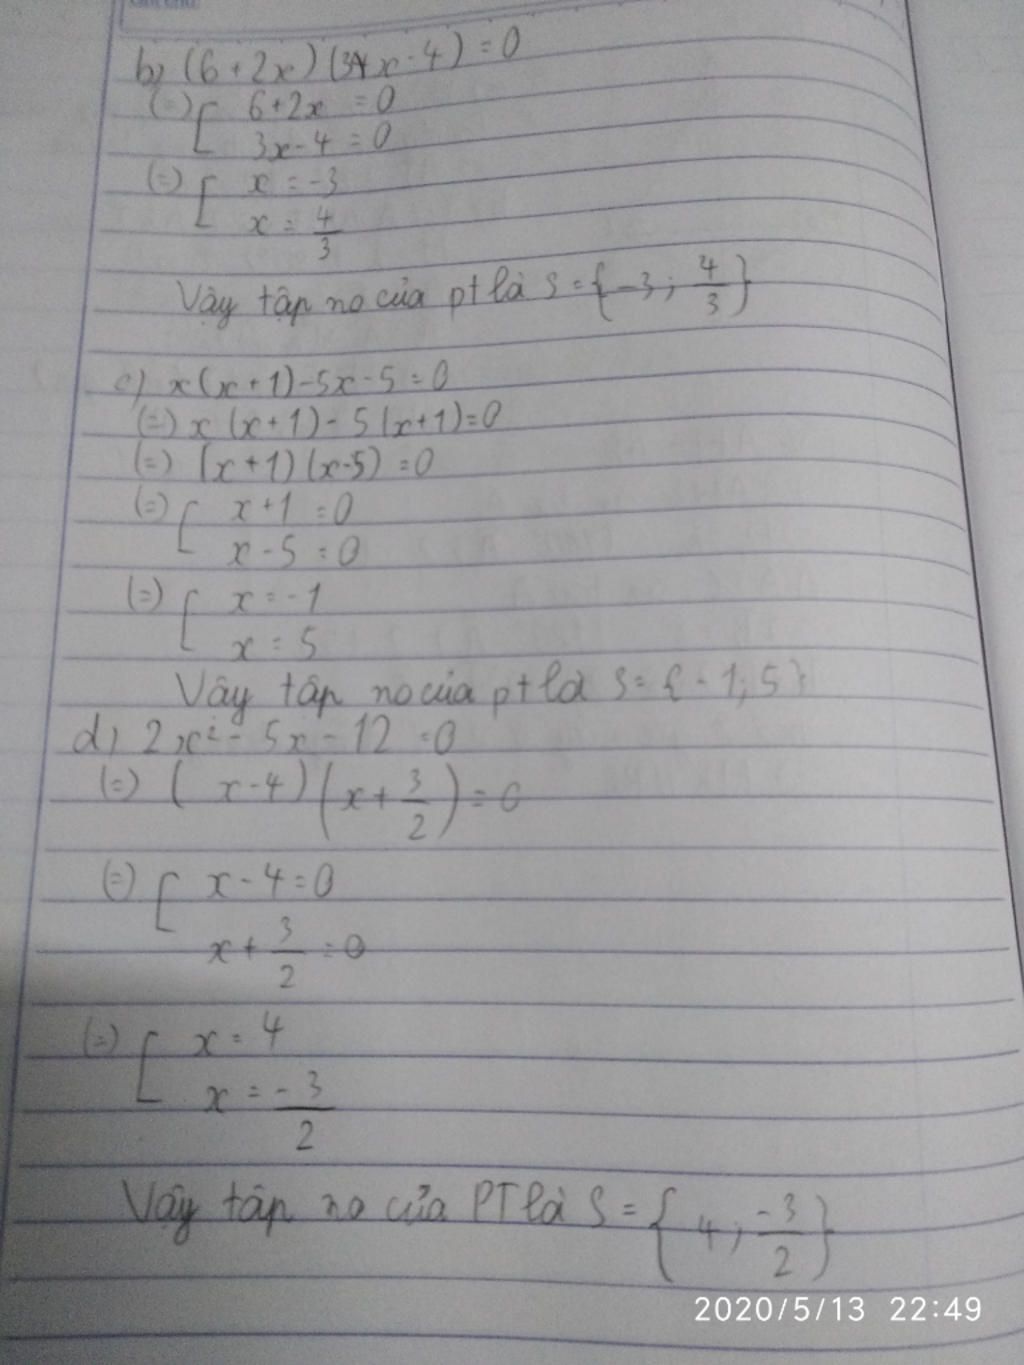 b) (6+2x)(3x-4)=0
(=) [ 6+2x =0
3x-4=0
(=) [ x=-3
x=4/3
Vậy tập no của pt là S={-3; 4/3}
c) x(x+1)-5x-5=0
(=) x(x+1)-5(x+1)=0
(=) (x+1)(x-5)=0
(=) [ x+1=0
x-5=0
(=) [ x=-1
x=5
Vậy tập no của pt là S={-1;5}
d) 2x²-5x-12=0
(=) (x-4)(x+3/2)=0
(=) [ x-4=0
x+3/2=0
(=) [ x=4
x=-3/2
Vậy tập no của PT là S={4; -3/2}
2020/5/13 22:49